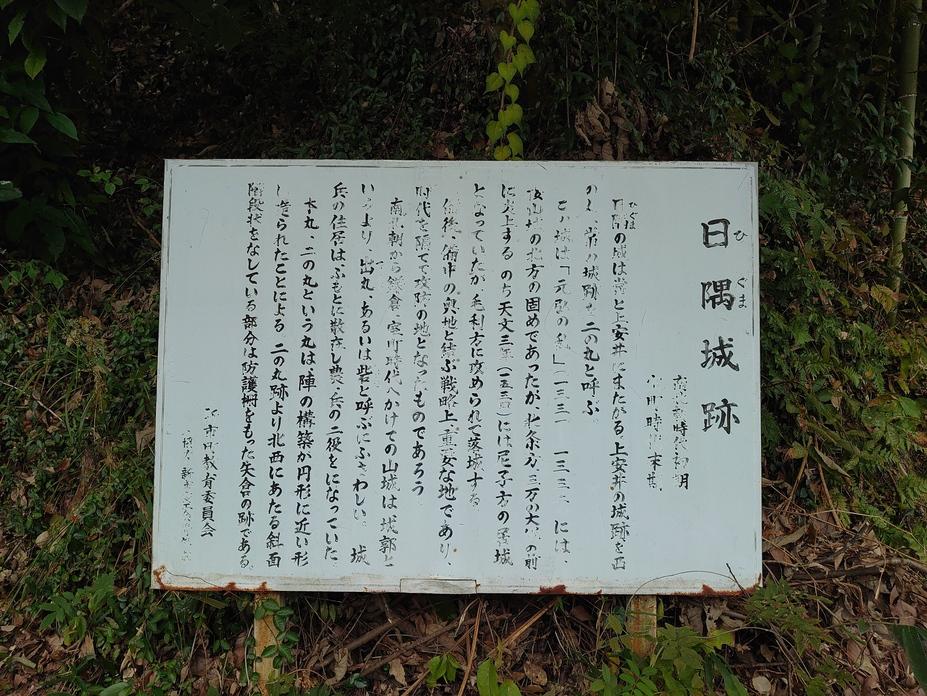 日隅城跡
ひぐま
時代初期
時代末葉
ひぐま
日隅の城は常と上安井にまたがる上安井の城跡を西
の丸 常の城跡を二の丸と呼ぶ
この城は「元弘の乱」(一三三一 一三三三)には、
桜山城の北方の固めであったが北条方二万の大軍の前
に炎上する のち天文三年(一五三四)には尼子方の属城
となっていたが毛利方に攻められて落城する
備後、備中の奥地と結ぶ戦略上重要な地であり、
時代を隔てて攻防の地となったものであろう
南北朝から鎌倉、室町時代へかけての山城は城郭と
いうより、出丸、あるいは砦と呼ぶにふさわしい、城
兵の住居はふもとに散在し農、兵の二役をになっていた
本丸、二の丸という丸は陣の構築が円形に近い形
に造られたことによる 二の丸跡より北西にあたる斜面
階段状をなしている部分は防護柵をもった矢倉の跡である。
市町教育委員会